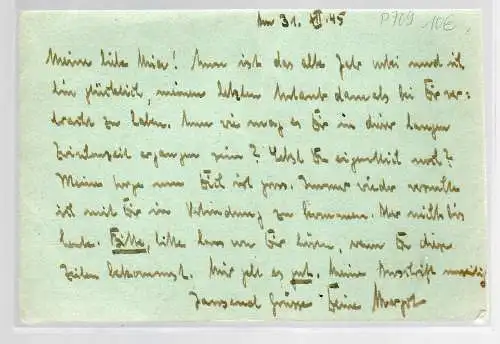 Am 31. XII. 45
P709 10€
Meine liebe Mia! Nun ist das alte Jahr vorbei und ich
bin glücklich, meinen letzten Urlaub damals bei Dir ver=
bracht zu haben. Nun wie mag es Dir in dieser langen
Zwischenzeit ergangen sein? Lebst Du eigentlich noch?
Meine Sorge um Dich ist gross. Immer wieder versuchte
ich mit Dir in Verbindung zu kommen. Nur nichts bis
heute. Bitte, bitte lass von Dir hören, wenn Du diese
Zeilen bekommst. Mir geht es gut. Meine Anschrift umseitig
Tausend Grüsse Deine Margot